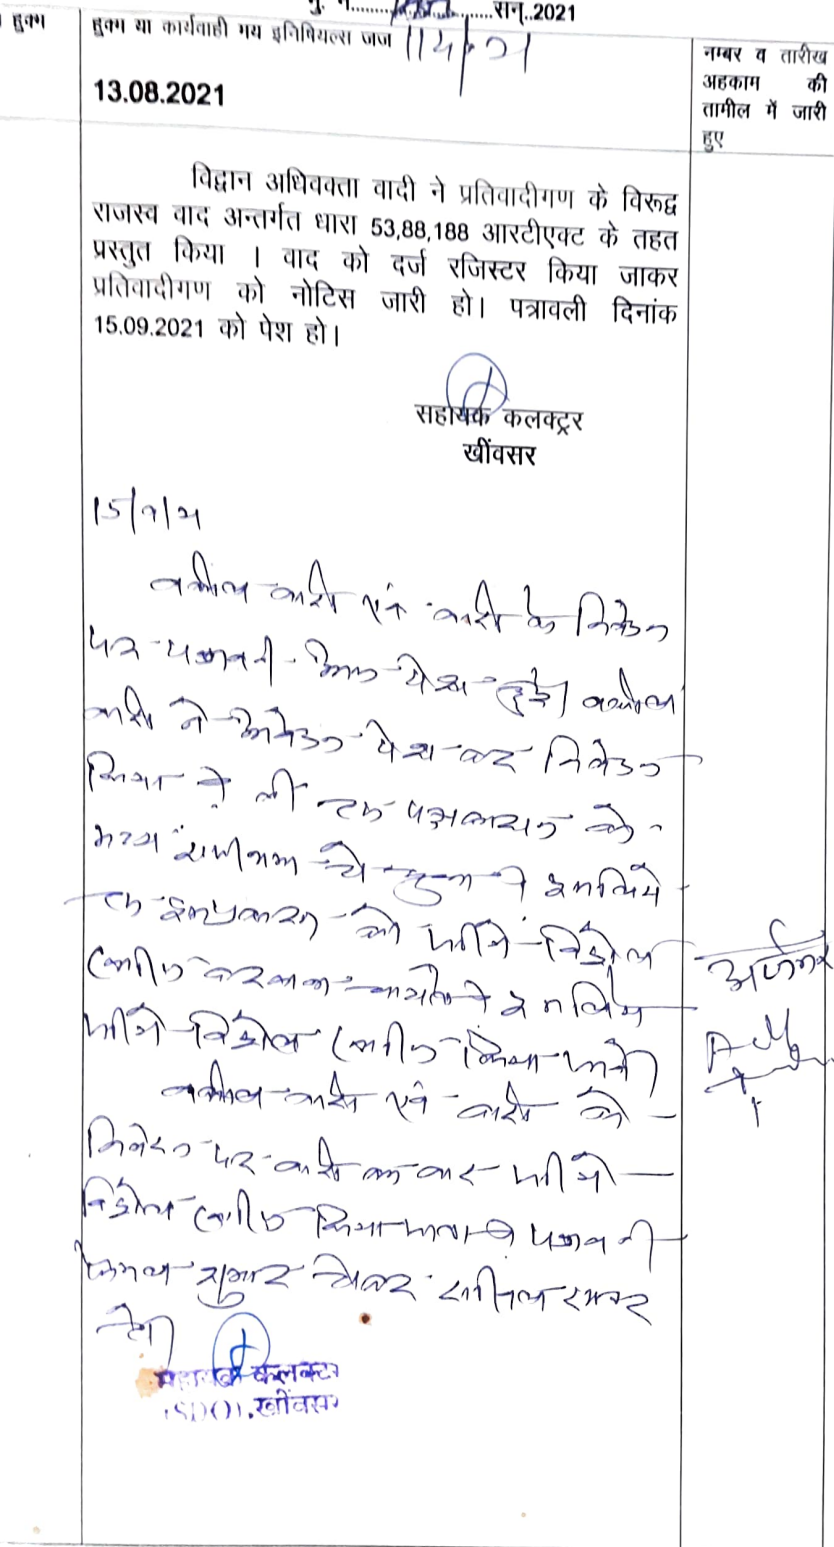 मु. नं...................सन्..2021
हुक्म
हुक्म या कार्यवाही मय इनिषियल्स जज
114/21
नम्बर व तारीख
अहकाम की
तामील में जारी
हुए
13.08.2021
विद्वान अधिवक्ता वादी ने प्रतिवादीगण के विरूद्ध
राजस्व वाद अन्तर्गत धारा 53,88,188 आरटीएक्ट के तहत
प्रस्तुत किया । वाद को दर्ज रजिस्टर किया जाकर
प्रतिवादीगण को नोटिस जारी हो। पत्रावली दिनांक
15.09.2021 को पेश हो।
सहायक कलक्ट्रर
खींवसर
15/9/21
वकील वादी एवं वादी के निवेदन
पर पत्रावली पेश हुई। वकील
वादी ने पेश कर निवेदन
किया है की पक्षकारान के
मध्य राजीनामा हो चुका है इसलिये
को विड्रोल
खारीज करवाना चाहते है इसलिये
विड्रोल खारीज किया जावे।
वकील वादी एवं वादी के
निवेदन पर वादी का वाद
विड्रोल खारीज किया जाता है पत्रावली
फैसल शुमार होकर दाखिल दफ्तर
हो।
सहायक कलक्टर
(SDO). खींवसर